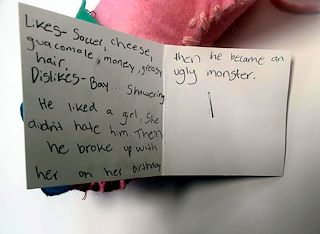 Likes- Soccer, cheese,
guacomole, money, greasy
hair,
Dislikes- Bay... Showering
He liked a girl, She
didn't hate him. Then
he broke up with
her on her birthday
then he became an
ugly monster.